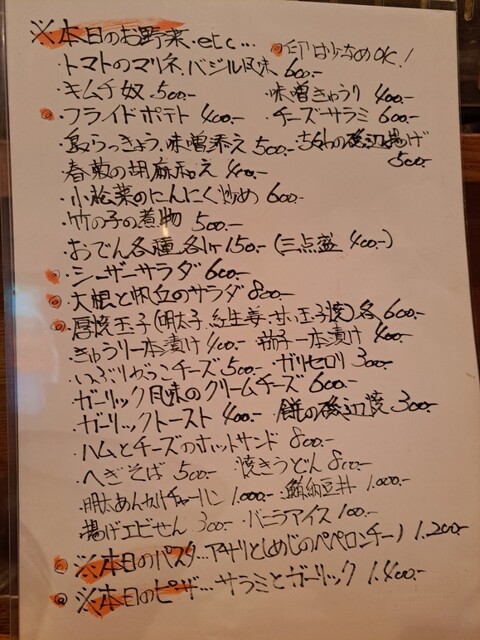 ※本日のお野菜.etc... ◎印は少なめOK!
・トマトのマリネ.バジル風味 600.-
・キムチ奴 500.- ・味噌きゅうり 400.-
◎・フライドポテト 400.- ・チーズサラミ 600.-
・島らっきょう.味噌添え 500.- ・ちくわの磯辺揚げ 500.-
・春菊の胡麻和え 400.-
・小松菜のにんにく炒め 600.-
・竹の子の煮物 500.-
・おでん各種 各1ヶ150.- (三点盛 400.-)
◎・シーザーサラダ 600.-
◎・大根と帆立のサラダ 800.-
◎・厚焼玉子(明太子、紅生姜・甘い玉子焼)各 600.-
・きゅうり一本漬け 400.- ・茄子一本漬け 400.-
・いぶりがっこチーズ 500.- ・ガリセロリ 300.-
・ガーリック風味のクリームチーズ 600.-
・ガーリックトースト 400.- ・餅の磯辺焼 300.-
・ハムとチーズのホットサンド 800.-
・へぎそば 500.- ・焼きうどん 800.-
・明太あんかけチャーハン 1.000.- ・鮪納豆丼 1.000.-
・揚げエビせん 300.- ・バニラアイス 100.-
◎※本日のパスタ...アサリとしめじのペペロンチーノ 1.200.-
◎※本日のピザ...サラミとガーリック 1.400.-